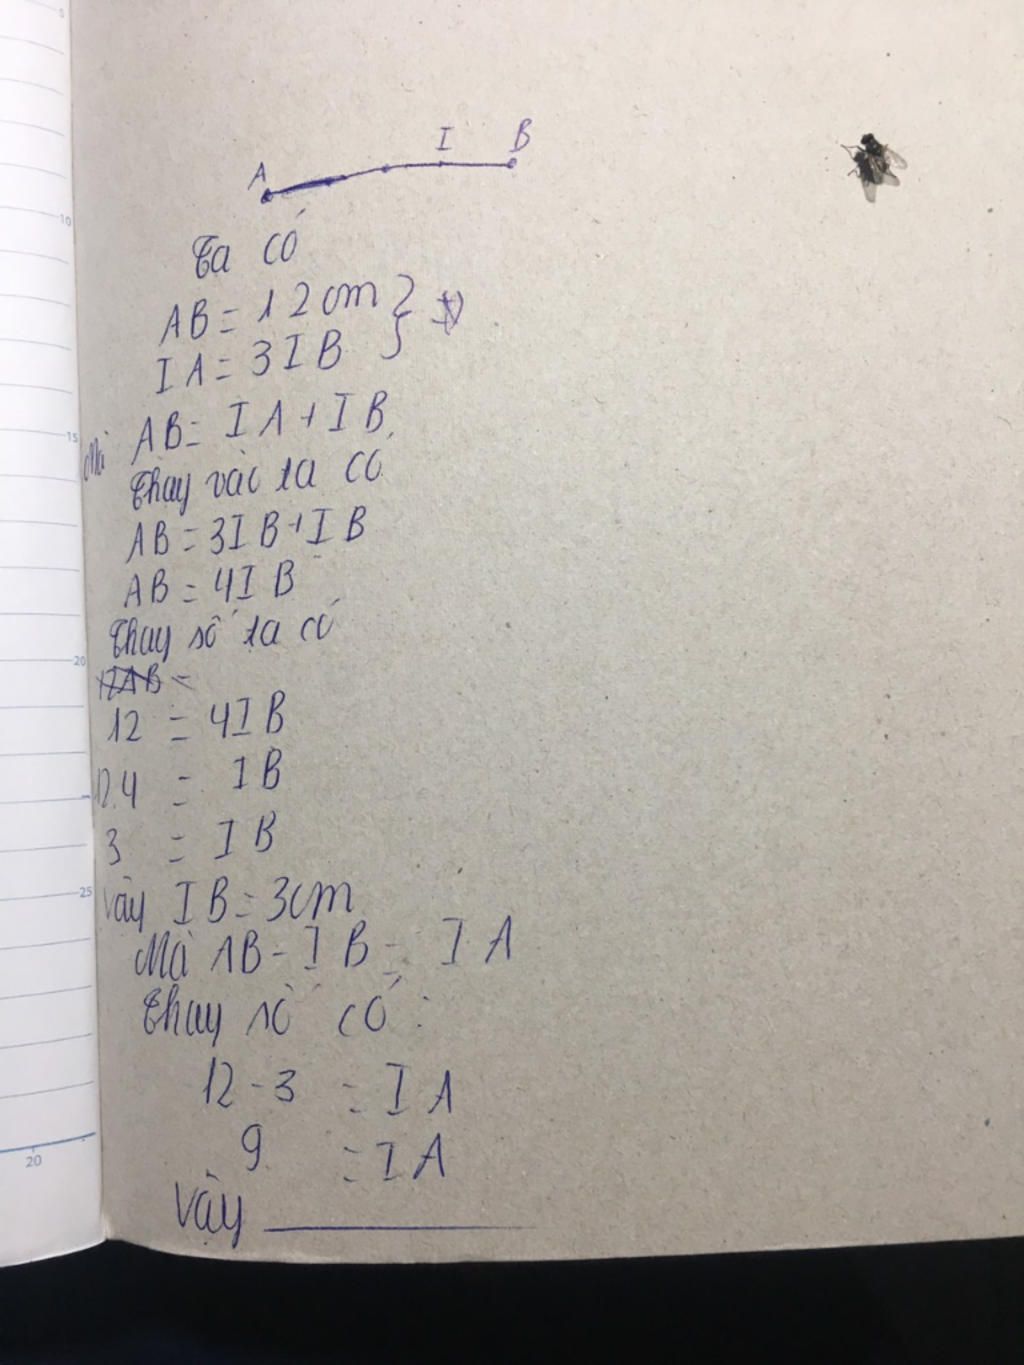 5
10
15
20
25
20
I B
A
Ta có
AB = 12 cm
IA = 3IB
Mà AB = IA + IB
Thay vào ta có
AB = 3IB + IB
AB = 4IB
Thay số ta có
12 = 4IB
12:4 = IB
3 = IB
Vậy IB = 3cm
Mà AB - IB = IA
Thay số có:
12 - 3 = IA
9 = IA
Vậy